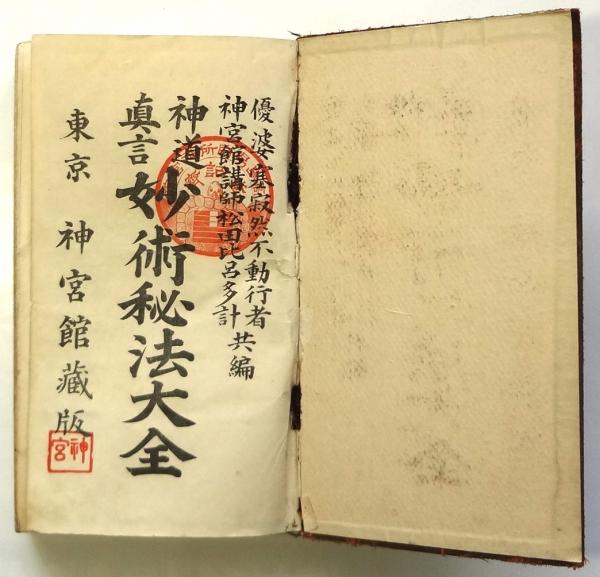 優婆塞寂然不動行者
神宮館講師松田比呂多計 共編
神道
真言
妙術秘法大全
東京 神宮館藏版
神宮